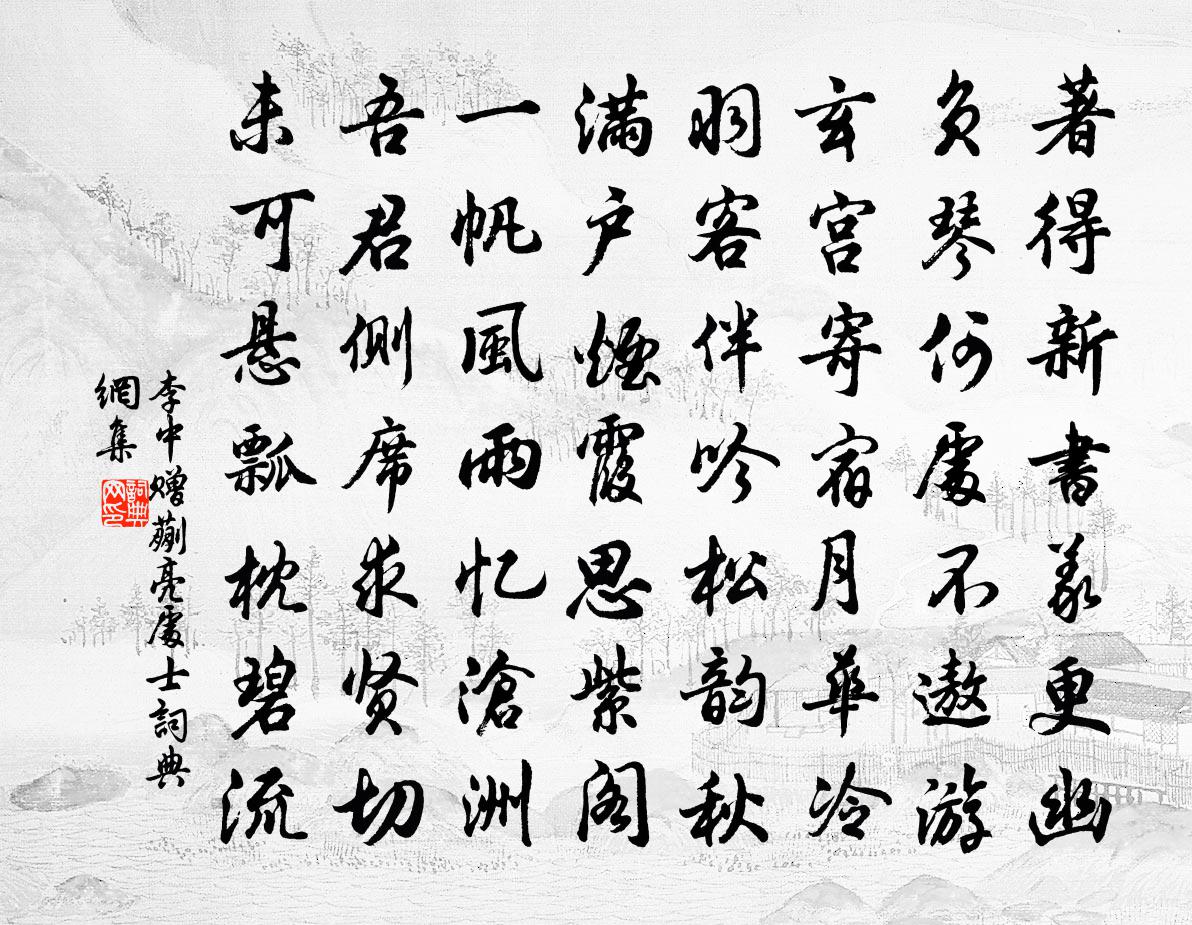 著得新書義更幽
负琴何處不遨游
玄宫寄宿月華冷
羽客伴吟松韵秋
满户煙霞思紫阁
一帆風雨忆滄洲
吾君侧席求贤切
未可悬瓢枕碧流
李中赠蒯亮處士詞典
網集
詞典
网印